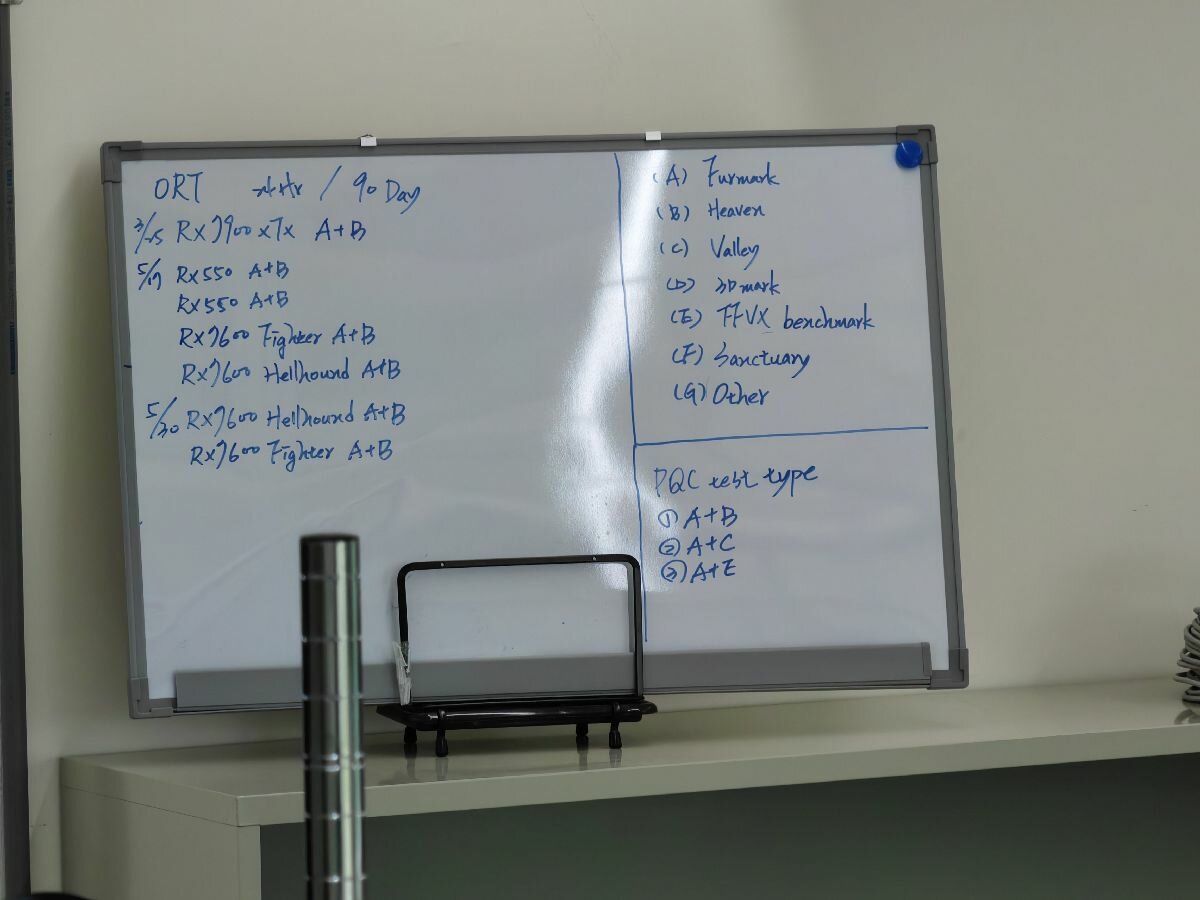 ORT / 90 Day
3/25 RX7900x7x A+B
5/17 RX550 A+B
RX550 A+B
RX7600 Fighter A+B
RX7600 Hellhound A+B
5/30 RX7600 Hellhound A+B
RX7600 Fighter A+B
(A) Furmark
(B) Heaven
(C) Valley
(D) 3Dmark
(E) FFVX benchmark
(F) Sanctuary
(G) Other
PQC test type
① A+B
② A+C
③ A+E